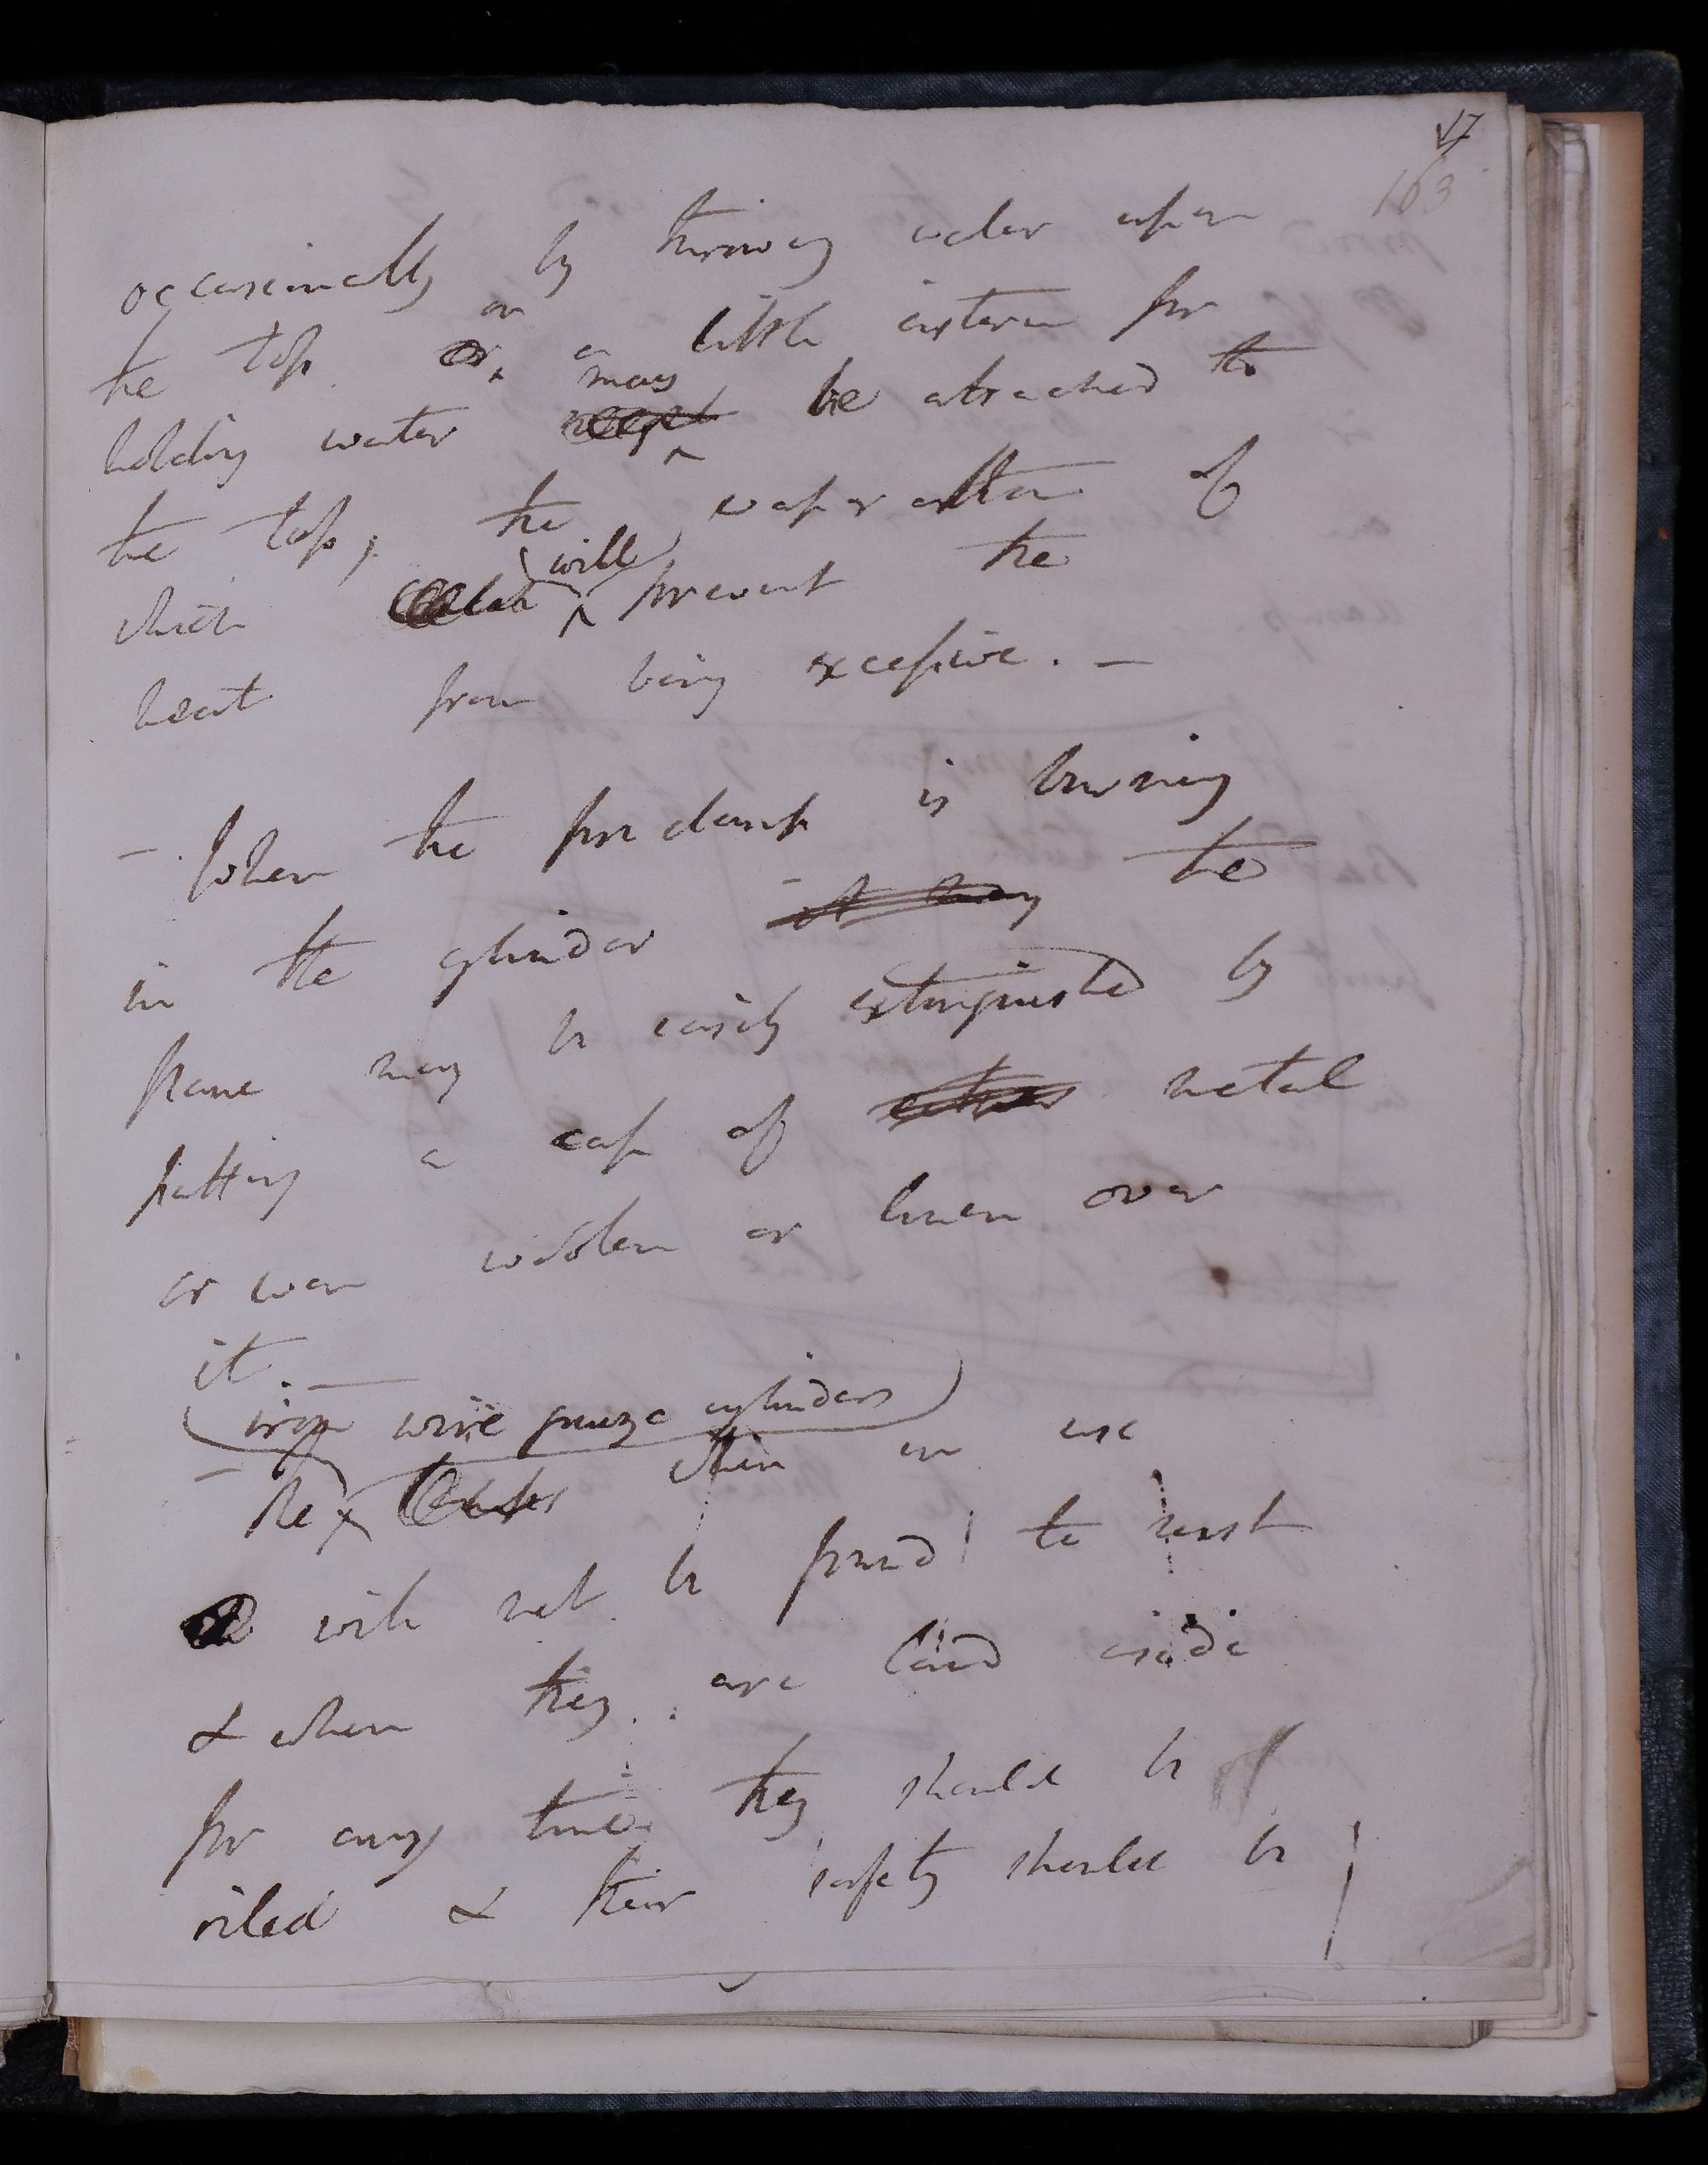 17
163
occasionally by throwing water upon
the top or or a little cistern for
holding water may be attached to
the top, the evaporation of
which will prevent the
heat from being excessive. —
— When the fire damp is burning
in the cylinder it may the
flame may be easily extinguished by
putting a cap of metal
or even woollen or linen over
it
(iron wire gauze cylinders)
— The when in use
will not be found to rust
& when they are laid aside
for any time they should be
oiled & their safety should be